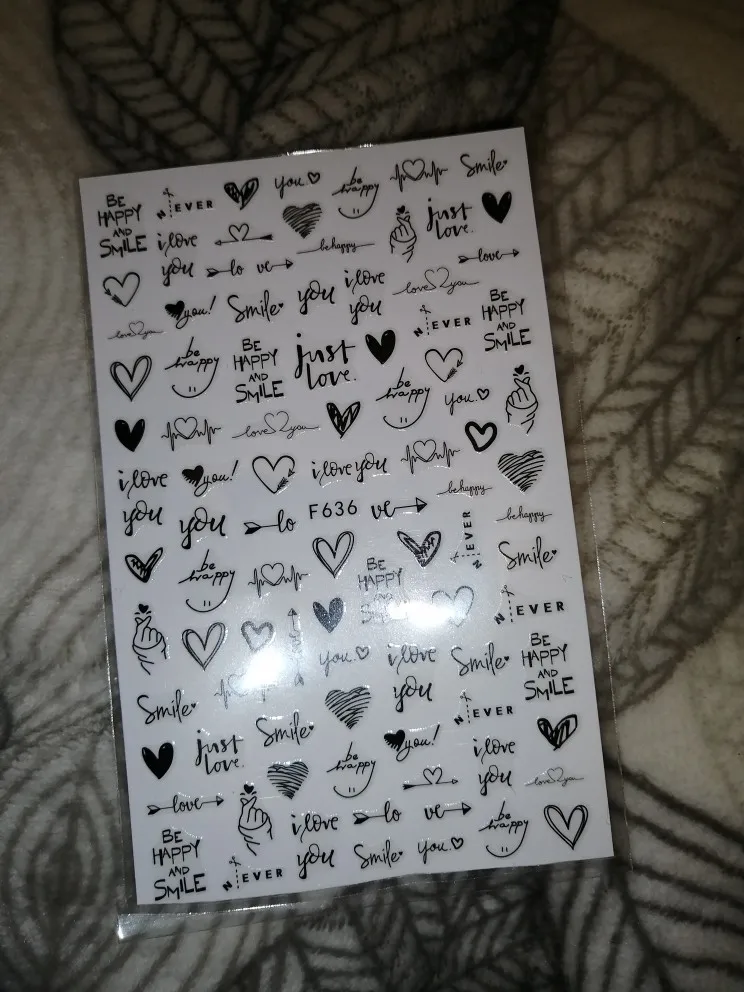 BE
HAPPY
AND
SMILE
NEVER
you
be
happy
Smile
i love
you
be happy
just
love.
lo
ve
love
love you
you!
Smile
you
i love
you
love you
NEVER
BE
HAPPY
AND
SMILE
be
happy
BE
HAPPY
AND
SMILE
just
love.
be
happy
you
love you
i love
you
you!
i love you
be happy
you
lo
F636
ve
NEVER
be happy
be
happy
BE
HAPPY
AND
SMILE
Smile
NEVER
you
i love
you
Smile
BE
HAPPY
AND
SMILE
Smile
NEVER
just
love.
Smile
be
happy
you!
i love
you
love you
love
i love
you
lo
ve
be
happy
BE
HAPPY
AND
SMILE
NEVER
Smile
you